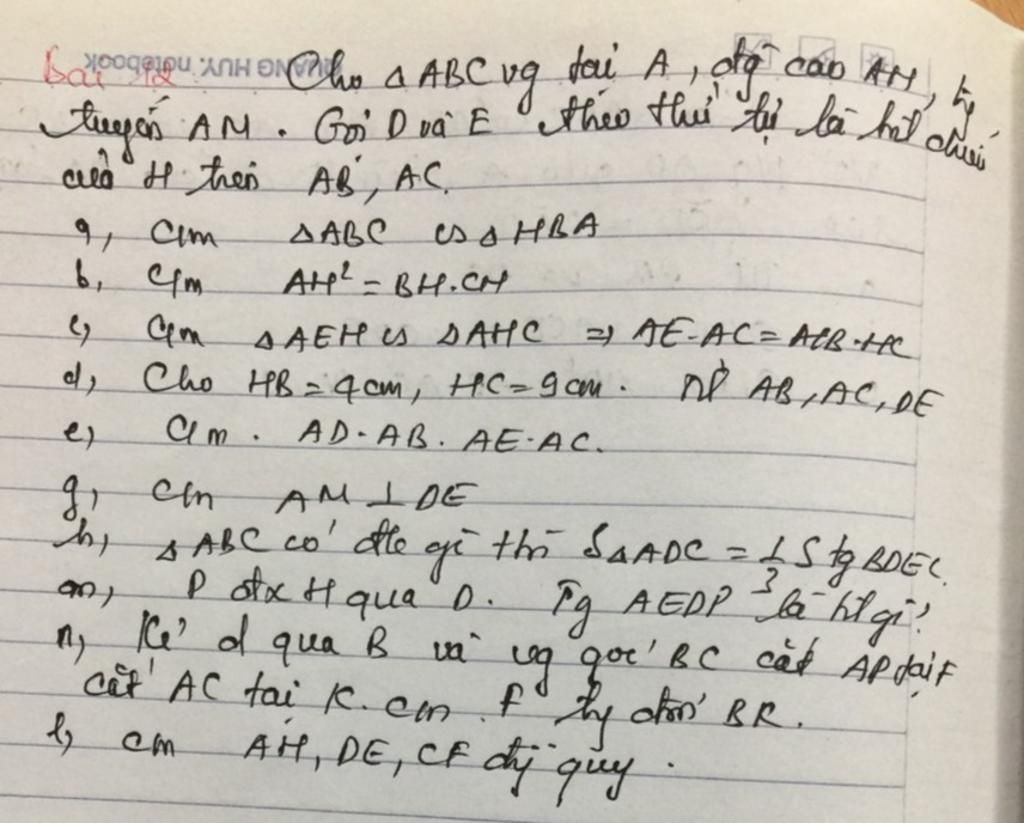 Bài 12 QUANG HUY: notebook Cho △ABC vg tại A, đg cao AH, ty
tuyến AM. Gọi D và E theo thứ tự là hil chiếu
của H trên AB, AC.
a, C/m △ABC ᔕ △HBA
b, C/m AH² = BH.CH
c, C/m △AEH ᔕ △AHC ⇒ AE.AC = HB.HC
d, Cho HB = 4cm, HC = 9cm. AB, AC, DE
e, C/m . AD.AB . AE.AC.
g, C/m AM ⊥ DE
h, △ABC có đk gì thì S△ADC = 1/3 S tg BDEC.
m, P đx H qua D. Tg AEDP là hl gì?
n, Kẻ d qua B và vg góc BC cắt AP tại F
cắt AC tại K. cm F ty điểm BK.
l, cm AH, DE, CF đg quy.